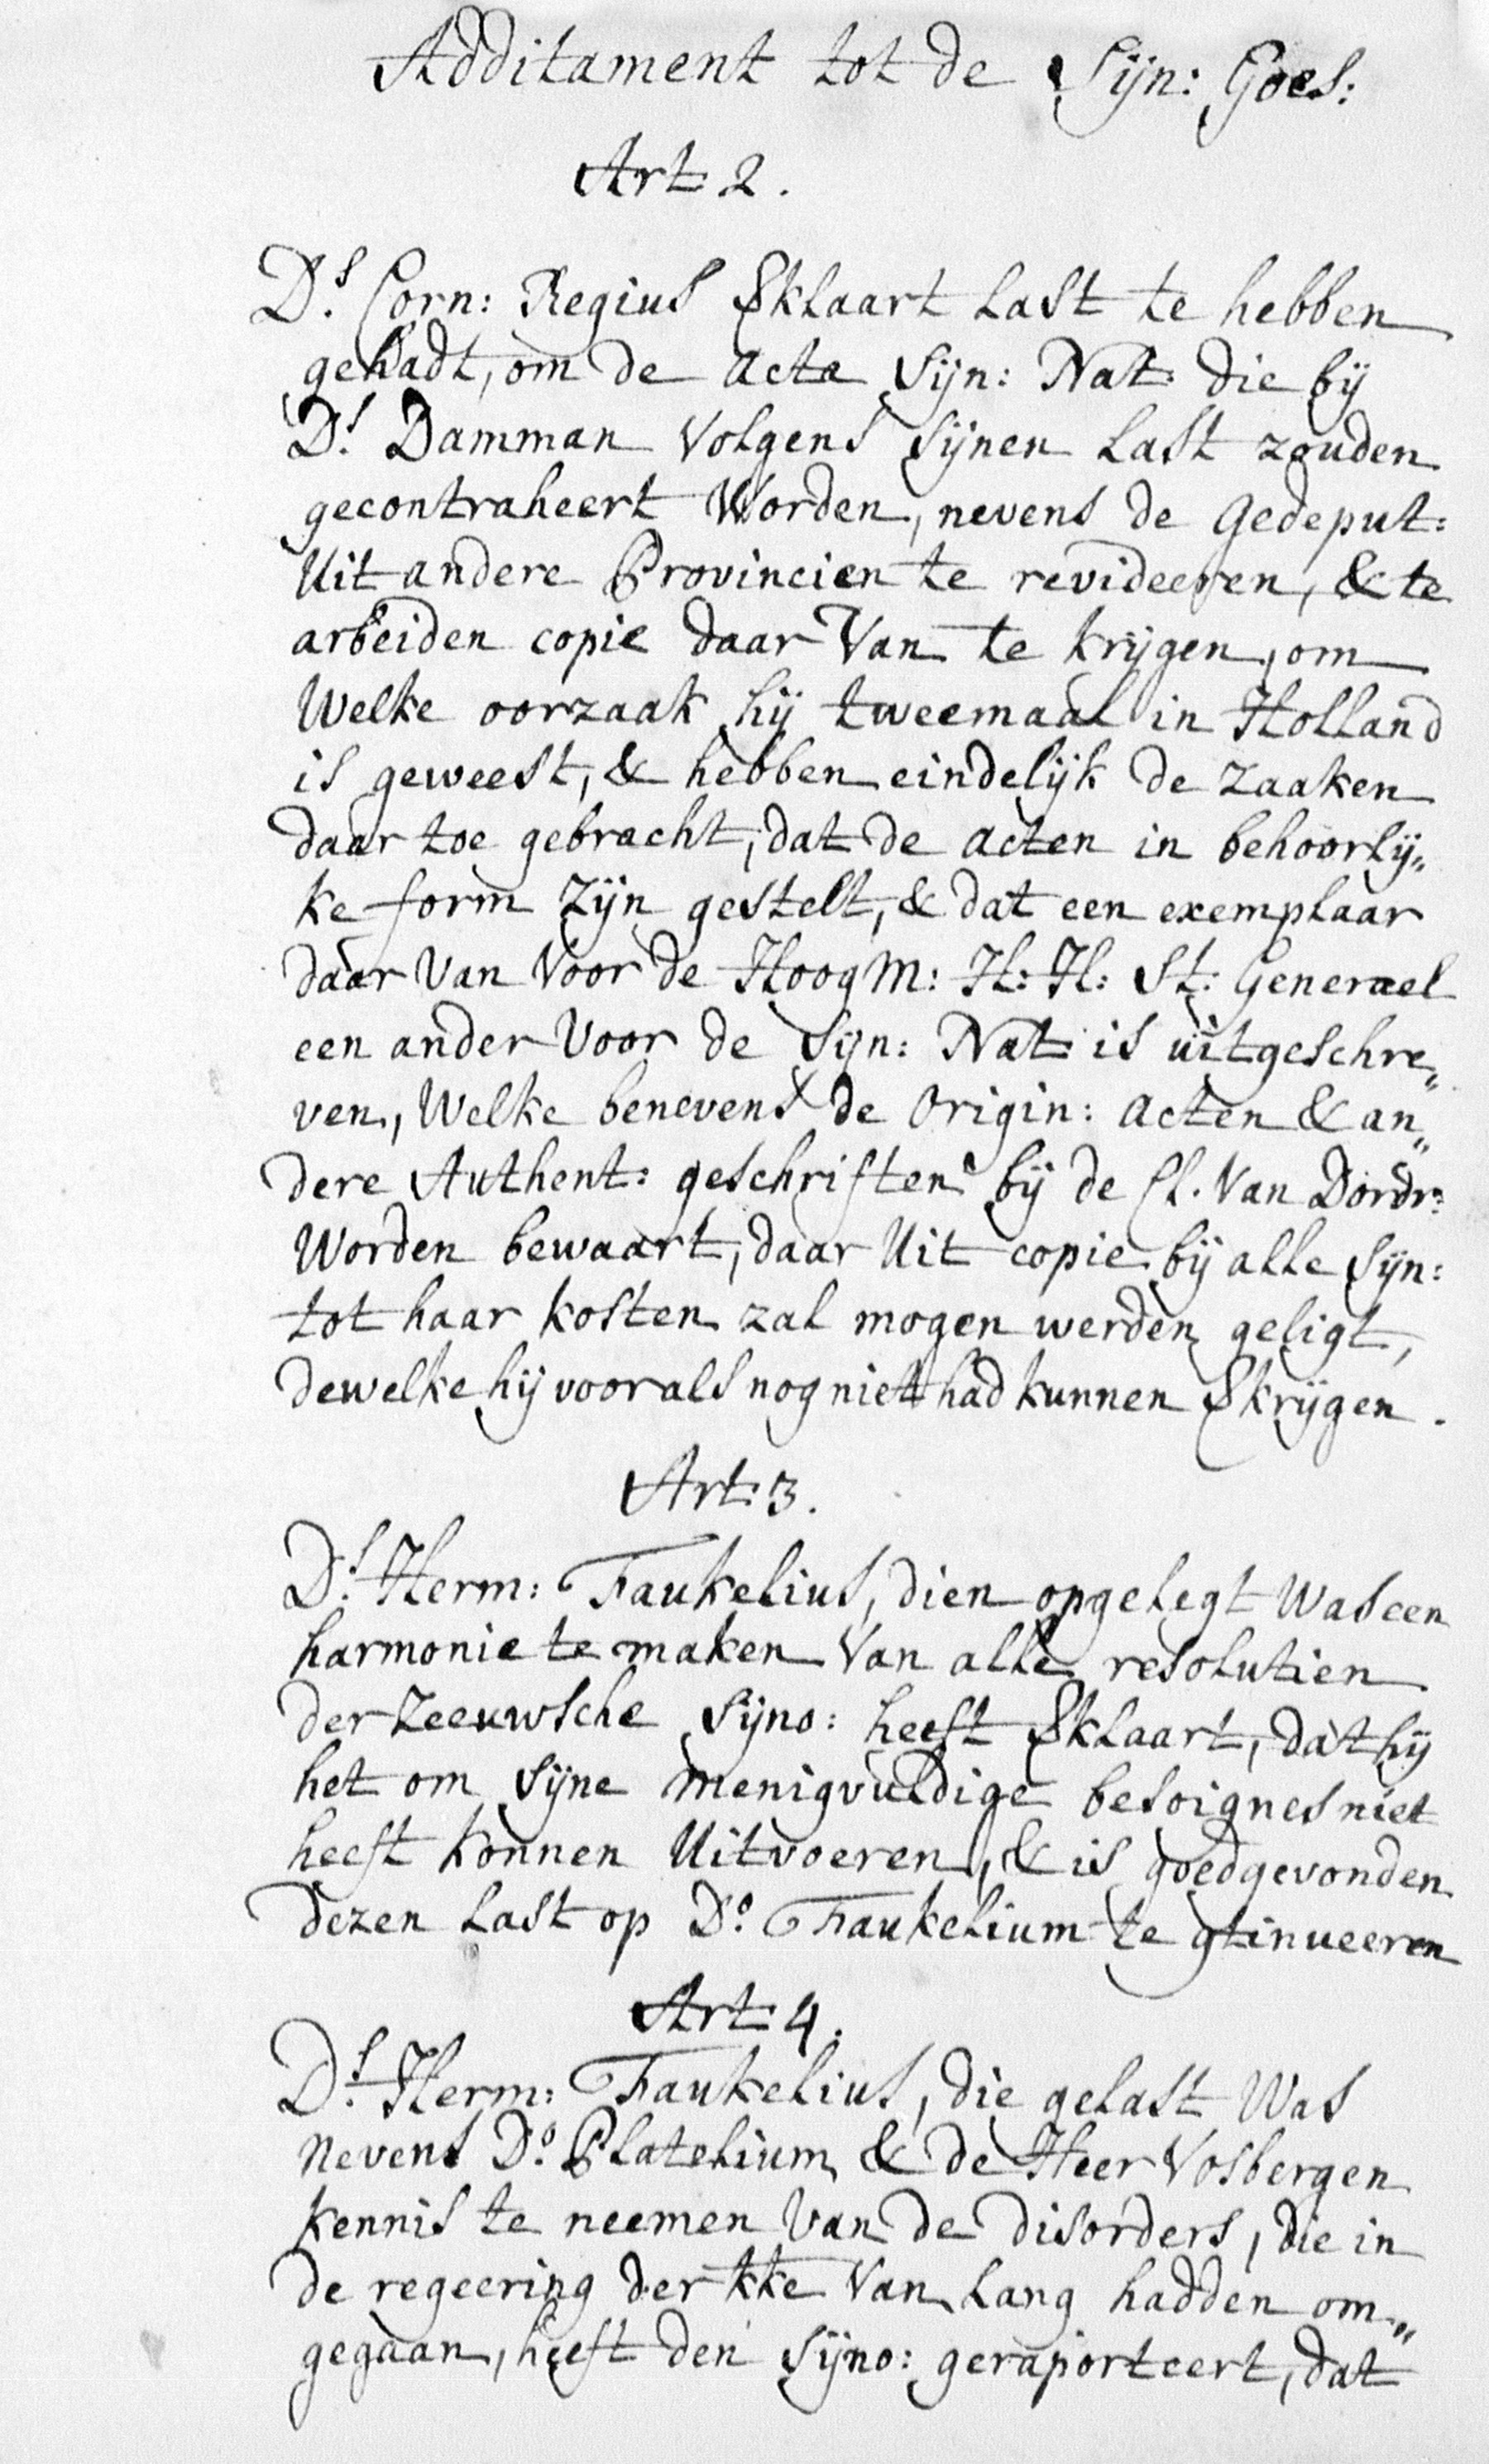 Additament tot de Sijn: Goes:
Art: 2.
Ds. Corn: Regius Vklaart Last te hebben
gehadt, om de Acta Sijn: Nat: die bij
Ds. Damman Volgens Sijnen Last zouden
gecontraheert Worden, nevens de Gedeput:
Uit andere Provincien te revideeren, & te
arbeiden copie daar Van te krijgen, om
Welke oorzaak hij tweemaal in Holland
is geweest, & hebben eindelijk de zaaken
daar toe gebracht, dat de Acten in behoorlij„
ke form zijn gestelt, & dat een exemplaar
daar Van Voor de Hoog M: H: H: St: Generael
een ander Voor de Sijn: Nat: is uitgeschre„
ven, Welke benevens de Origin: Acten & an„
dere Authent: geschriften bij de Cl. Van Dordr:
Worden bewaart, daar Uit copie bij alle Sijn:
tot haar kosten zal mogen werden geligt,
dewelke hij voor als nog niet had kunnen Vkrijgen.
Art: 3.
Ds. Herm: Faukelius, dien opgelegt Was een
harmonie te maken Van alle resolutien
der Zeeuwsche Sijno: heeft Vklaart, dat hij
het om Sijne menigvuldige besoignes niet
heeft konnen Uitvoeren, & is goedgevonden
dezen Last op Do. Faukelium te gtinueeren
Art: 4.
Ds. Herm: Faukelius, die gelast Was
Nevens Do. Platelium & de Heer Vosbergen
kennis te neemen Van de disorders, die in
de regeering der kke Van Lang hadden om„
gegaan, heeft den Sijno: geraporteert, dat